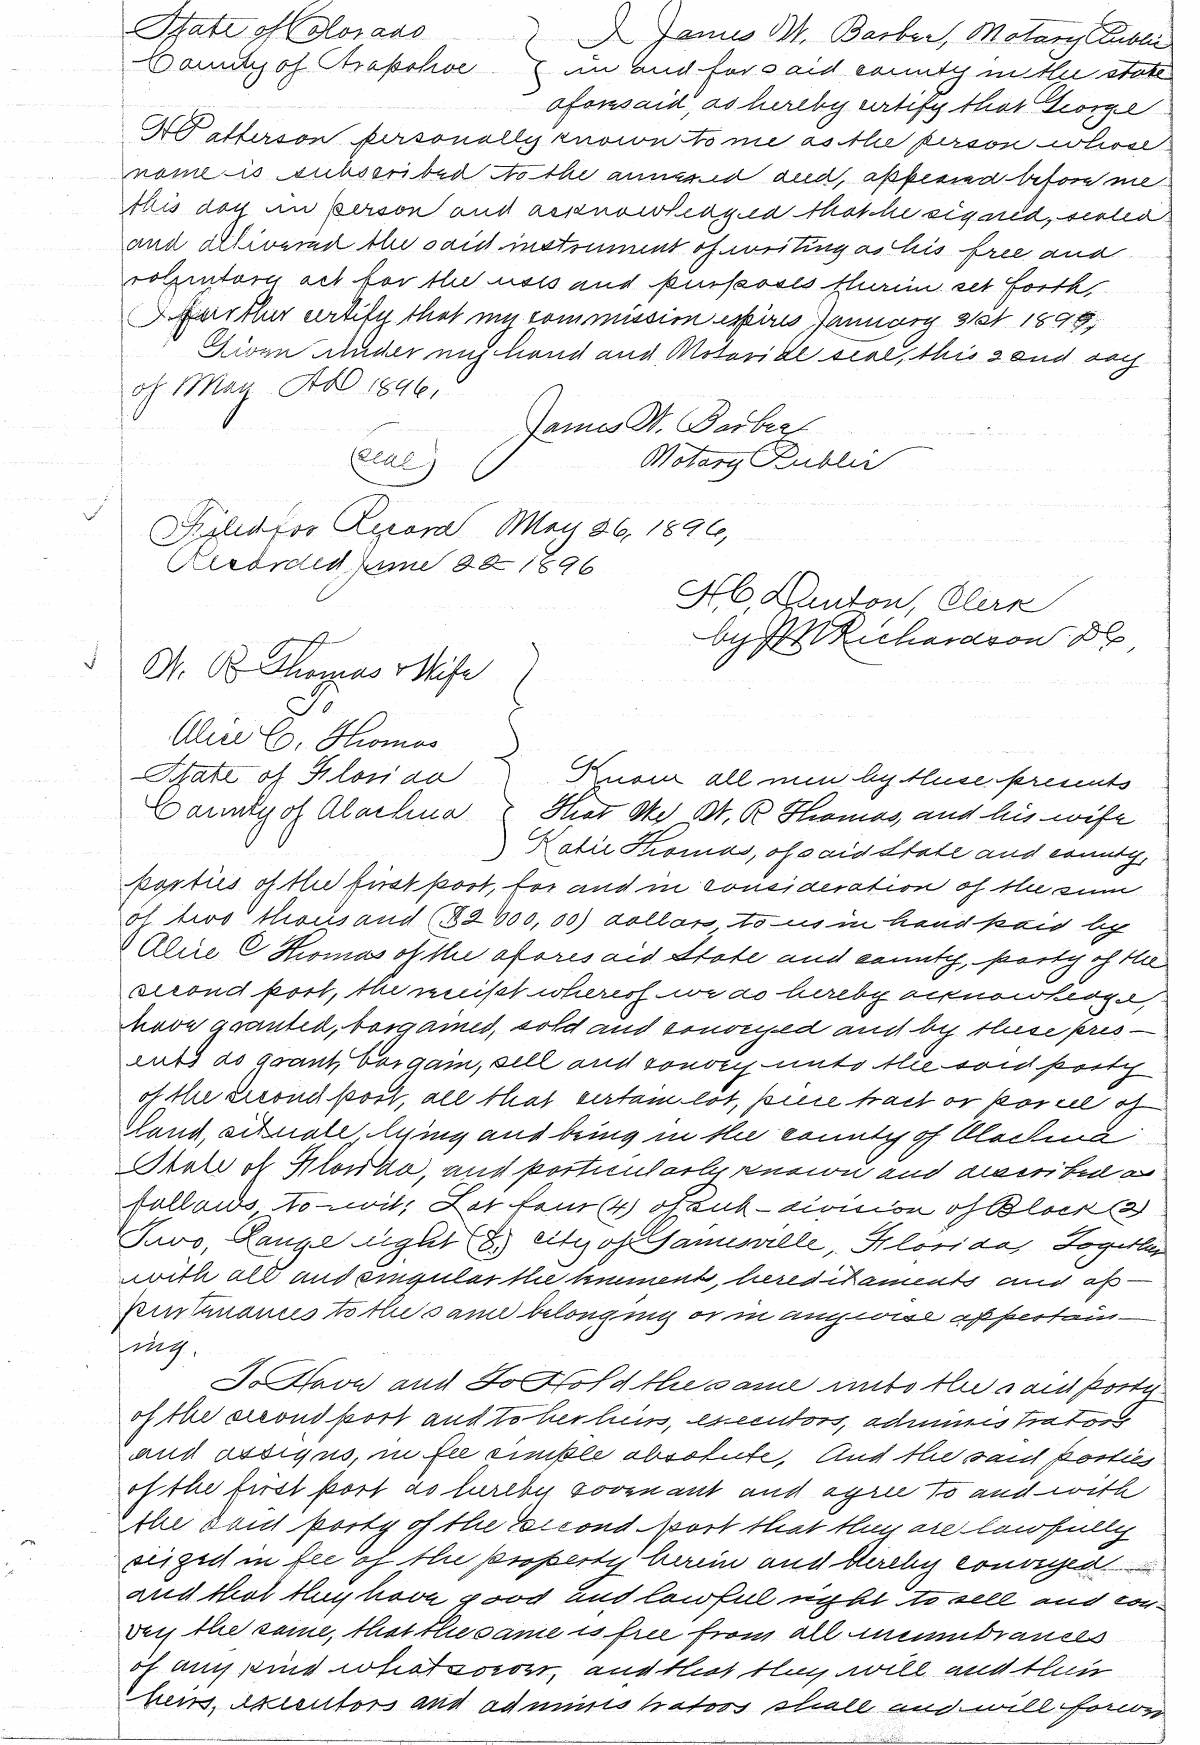 State of Colorado } I James W. Barber, Notary Public
County of Arapahoe } in and for said county in the state
aforesaid, do hereby certify that George
H Patterson personally known to me as the person whose
name is subscribed to the annexed deed, appeared before me
this day in person and acknowledged that he signed, sealed
and delivered the said instrument of writing as his free and
voluntary act for the uses and purposes therein set forth,
I further certify that my commission expires January 31st 1899,
Given under my hand and Notarial seal, this 22nd day
of May AD 1896,
James W. Barber
(seal) Notary Public
Filed for Record May 26, 1896,
Recorded June 22 1896
H.C. Denton, Clerk
by Richardson DC,
W. R Thomas & Wife
To
Alice C. Thomas
State of Florida Know all men by these presents
County of Alachua That We W. R Thomas, and his wife
Katie Thomas, of said State and county,
parties of the first part, for and in consideration of the sum
of two thousand ($2000,00) dollars, to us in hand paid by
Alice C Thomas of the aforesaid State and county, party of the
second part, the receipt whereof we do hereby acknowledge,
have granted, bargained, sold and conveyed and by these pres-
ents do grant, bargain, sell and convey unto the said party
of the second part, all that certain lot, piece tract or parcel of
land, situate, lying and being in the county of Alachua
State of Florida, and particularly known and described as
follows, to-wit; Lot four (4) of sub-division of Block (2)
Two, Range eight (8,) city of Gainesville, Florida, Together
with all and singular the tenements, hereditaments and ap-
purtenances to the same belonging or in anywise appertain-
ing.
To Have and To Hold the same unto the said party
of the second part and to her heirs, executors, administrators
and assigns, in fee simple absolute, And the said parties
of the first part do hereby covenant and agree to and with
the said party of the second part that they are lawfully
seized in fee of the property herein and hereby conveyed
and that they have good and lawful right to sell and con-
vey the same, that the same is free from all incumbrances
of any kind whatsoever, and that they will and their
heirs, executors and administrators shall and will forever